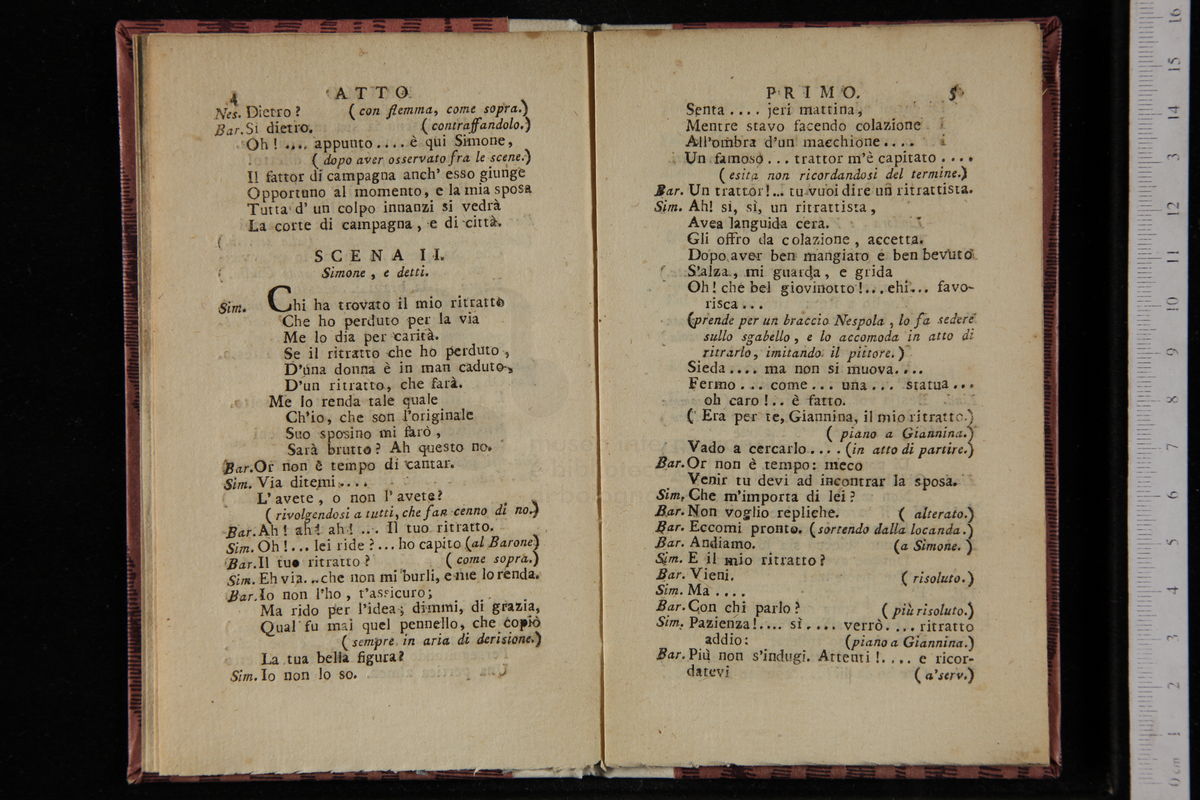 4
ATTO
Nes. Dietro? (con flemma, come sopra.)
Bar. Si dietro. (contraffandolo.)
Oh! .... appunto.... è qui Simone,
(dopo aver osservato fra le scene.)
Il fattor di campagna anch' esso giunge
Opportuno al momento, e la mia sposa
Tutta d' un colpo innanzi si vedrà
La corte di campagna, e di città.
SCENA II.
Simone, e detti.
Sim. Chi ha trovato il mio ritratto
Che ho perduto per la via
Me lo dia per carità.
Se il ritratto che ho perduto,
D'una donna è in man caduto,
D'un ritratto, che farà.
Me lo renda tale quale
Ch'io, che son l'originale
Suo sposino mi farò,
Sarà brutto? Ah questo no.
Bar. Or non è tempo di cantar.
Sim. Via ditemi....
L' avete, o non l' avete?
(rivolgendosi a tutti, che fan cenno di no.)
Bar. Ah! ah! ah! .... Il tuo ritratto.
Sim. Oh!... lei ride?... ho capito (al Barone)
Bar. Il tuo ritratto? (come sopra.)
Sim. Eh via... che non mi burli, e me lo renda.
Bar. Io non l'ho, t'assicuro;
Ma rido per l'idea; dimmi, di grazia,
Qual fu mai quel pennello, che copiò
(sempre in aria di derisione.)
La tua bella figura?
Sim. Io non lo so.
PRIMO.
5
Senta.... jeri mattina,
Mentre stavo facendo colazione
All'ombra d'un macchione....
Un famoso... trattor m'è capitato....
(esita non ricordandosi del termine.)
Bar. Un trattor!... tu vuoi dire un ritrattista.
Sim. Ah! si, sì, un ritrattista,
Avea languida cera.
Gli offro da colazione, accetta.
Dopo aver ben mangiato e ben bevuto
S'alza, mi guarda, e grida
Oh! che bel giovinotto!... ehi... favo-
risca...
(prende per un braccio Nespola, lo fa sedere
sullo sgabello, e lo accomoda in atto di
ritrarlo, imitando il pittore.)
Sieda.... ma non si muova....
Fermo... come... una... statua...
oh caro!.. è fatto.
(Era per te, Giannina, il mio ritratto.)
(piano a Giannina.)
Vado a cercarlo.... (in atto di partire.)
Bar. Or non è tempo: meco
Venir tu devi ad incontrar la sposa.
Sim. Che m'importa di lei?
Bar. Non voglio repliche. (alterato.)
Bar. Eccomi pronto. (sortendo dalla locanda.)
Bar. Andiamo. (a Simone.)
Sim. E il mio ritratto?
Bar. Vieni. (risoluto.)
Sim. Ma....
Bar. Con chi parlo? (più risoluto.)
Sim. Pazienza!.... sì.... verrò.... ritratto
addio: (piano a Giannina.)
Bar. Più non s'indugi. Attenti!.... e ricor-
datevi (a' serv.)